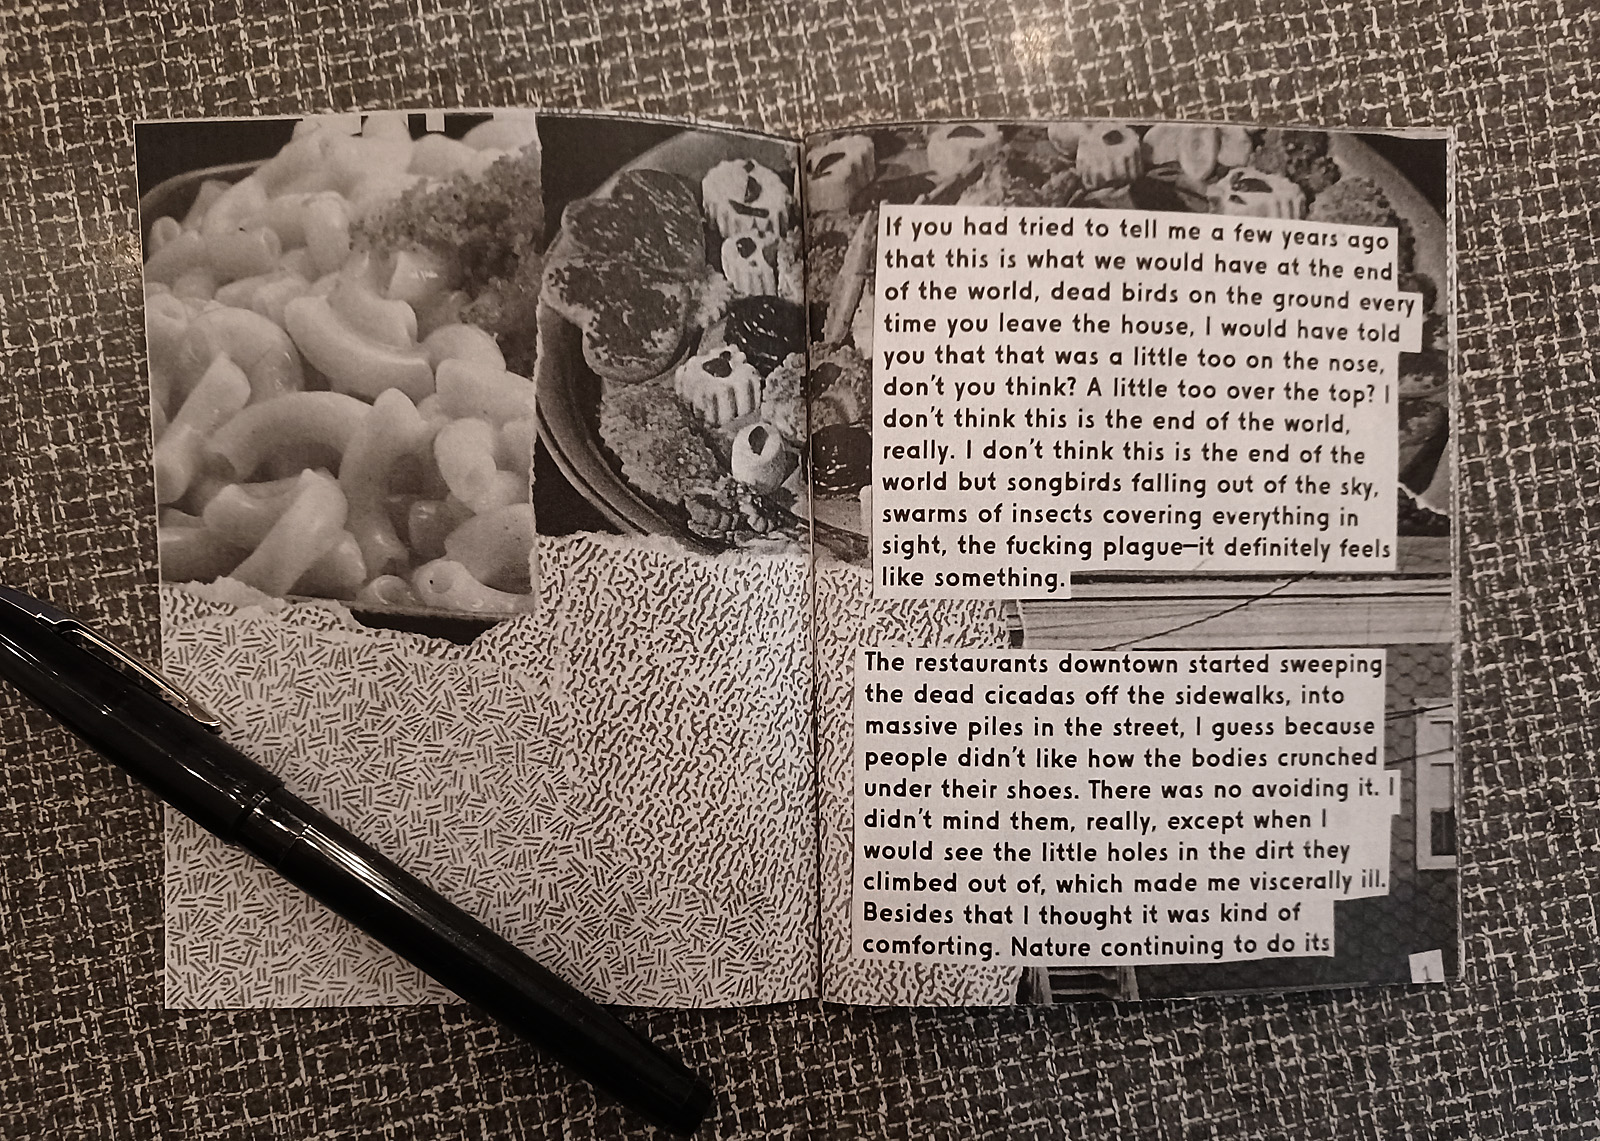 If you had tried to tell me a few years ago
that this is what we would have at the end
of the world, dead birds on the ground every
time you leave the house, I would have told
you that that was a little too on the nose,
don't you think? A little too over the top? I
don't think this is the end of the world,
really. I don't think this is the end of the
world but songbirds falling out of the sky,
swarms of insects covering everything in
sight, the fucking plague—it definitely feels
like something.
The restaurants downtown started sweeping
the dead cicadas off the sidewalks, into
massive piles in the street, I guess because
people didn't like how the bodies crunched
under their shoes. There was no avoiding it. I
didn't mind them, really, except when I
would see the little holes in the dirt they
climbed out of, which made me viscerally ill.
Besides that I thought it was kind of
comforting. Nature continuing to do its
1